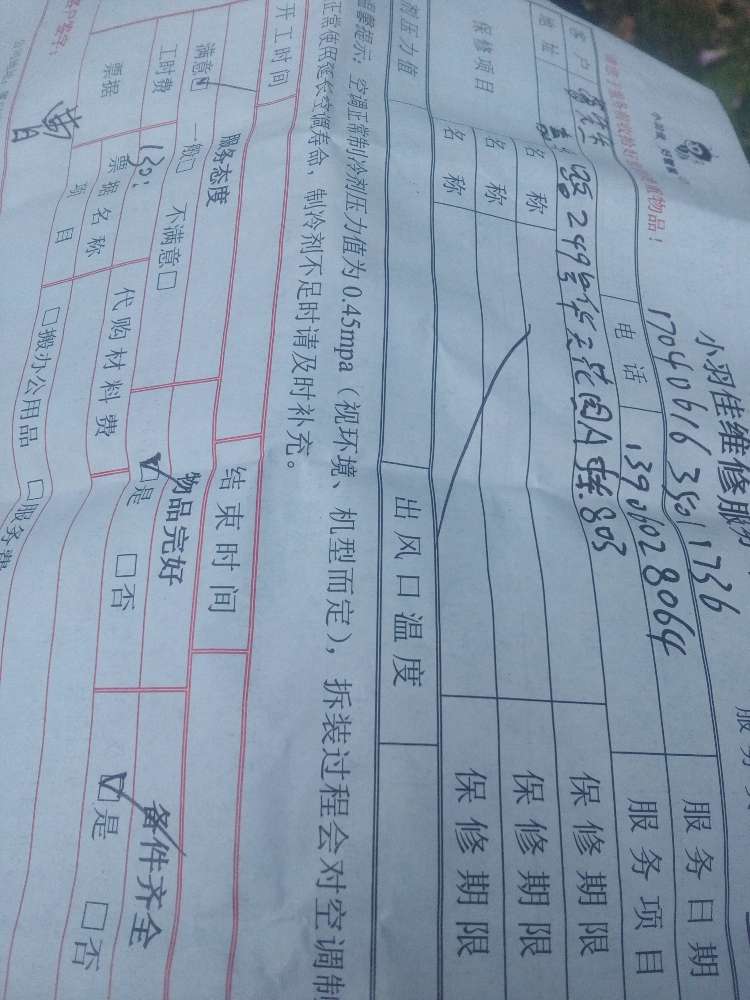 小羽佳 好管家
小羽佳维修服务
170406163501736
客户 电话 13906028064 服务日期
地址 249号华王花园A栋803 服务项目
保修项目 名称 保修期限
名称 保修期限
名称 保修期限
剂压力值 出风口温度
温馨提示：空调正常制冷剂压力值为0.45mpa（视环境、机型而定），拆装过程会对空调制
正常使用延长空调寿命，制冷剂不足时请及时补充。
开工时间 结束时间
服务态度 物品完好 备件齐全
满意☑ 一般□ 不满意□ ☑是 □否 ☑是 □否
工时费 130 代购材料费
票据 票据名称
项目 □搬办公用品 □服务费